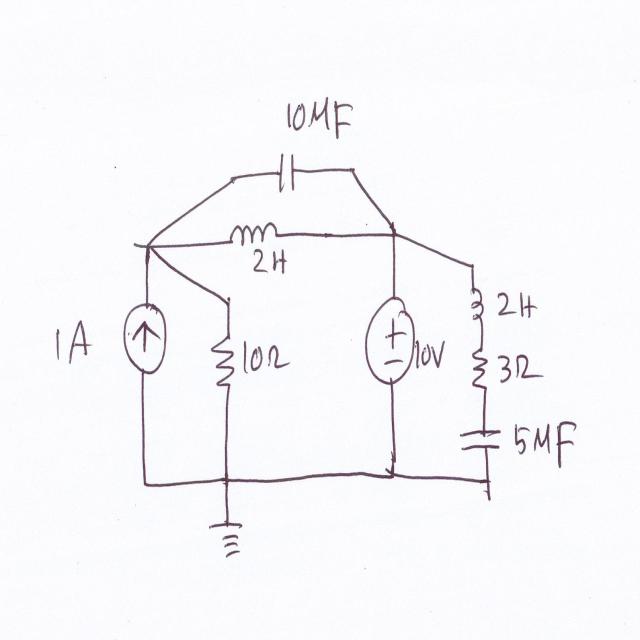 10MF
2H
1A
10Ω
+
-
10V
2H
3Ω
5MF